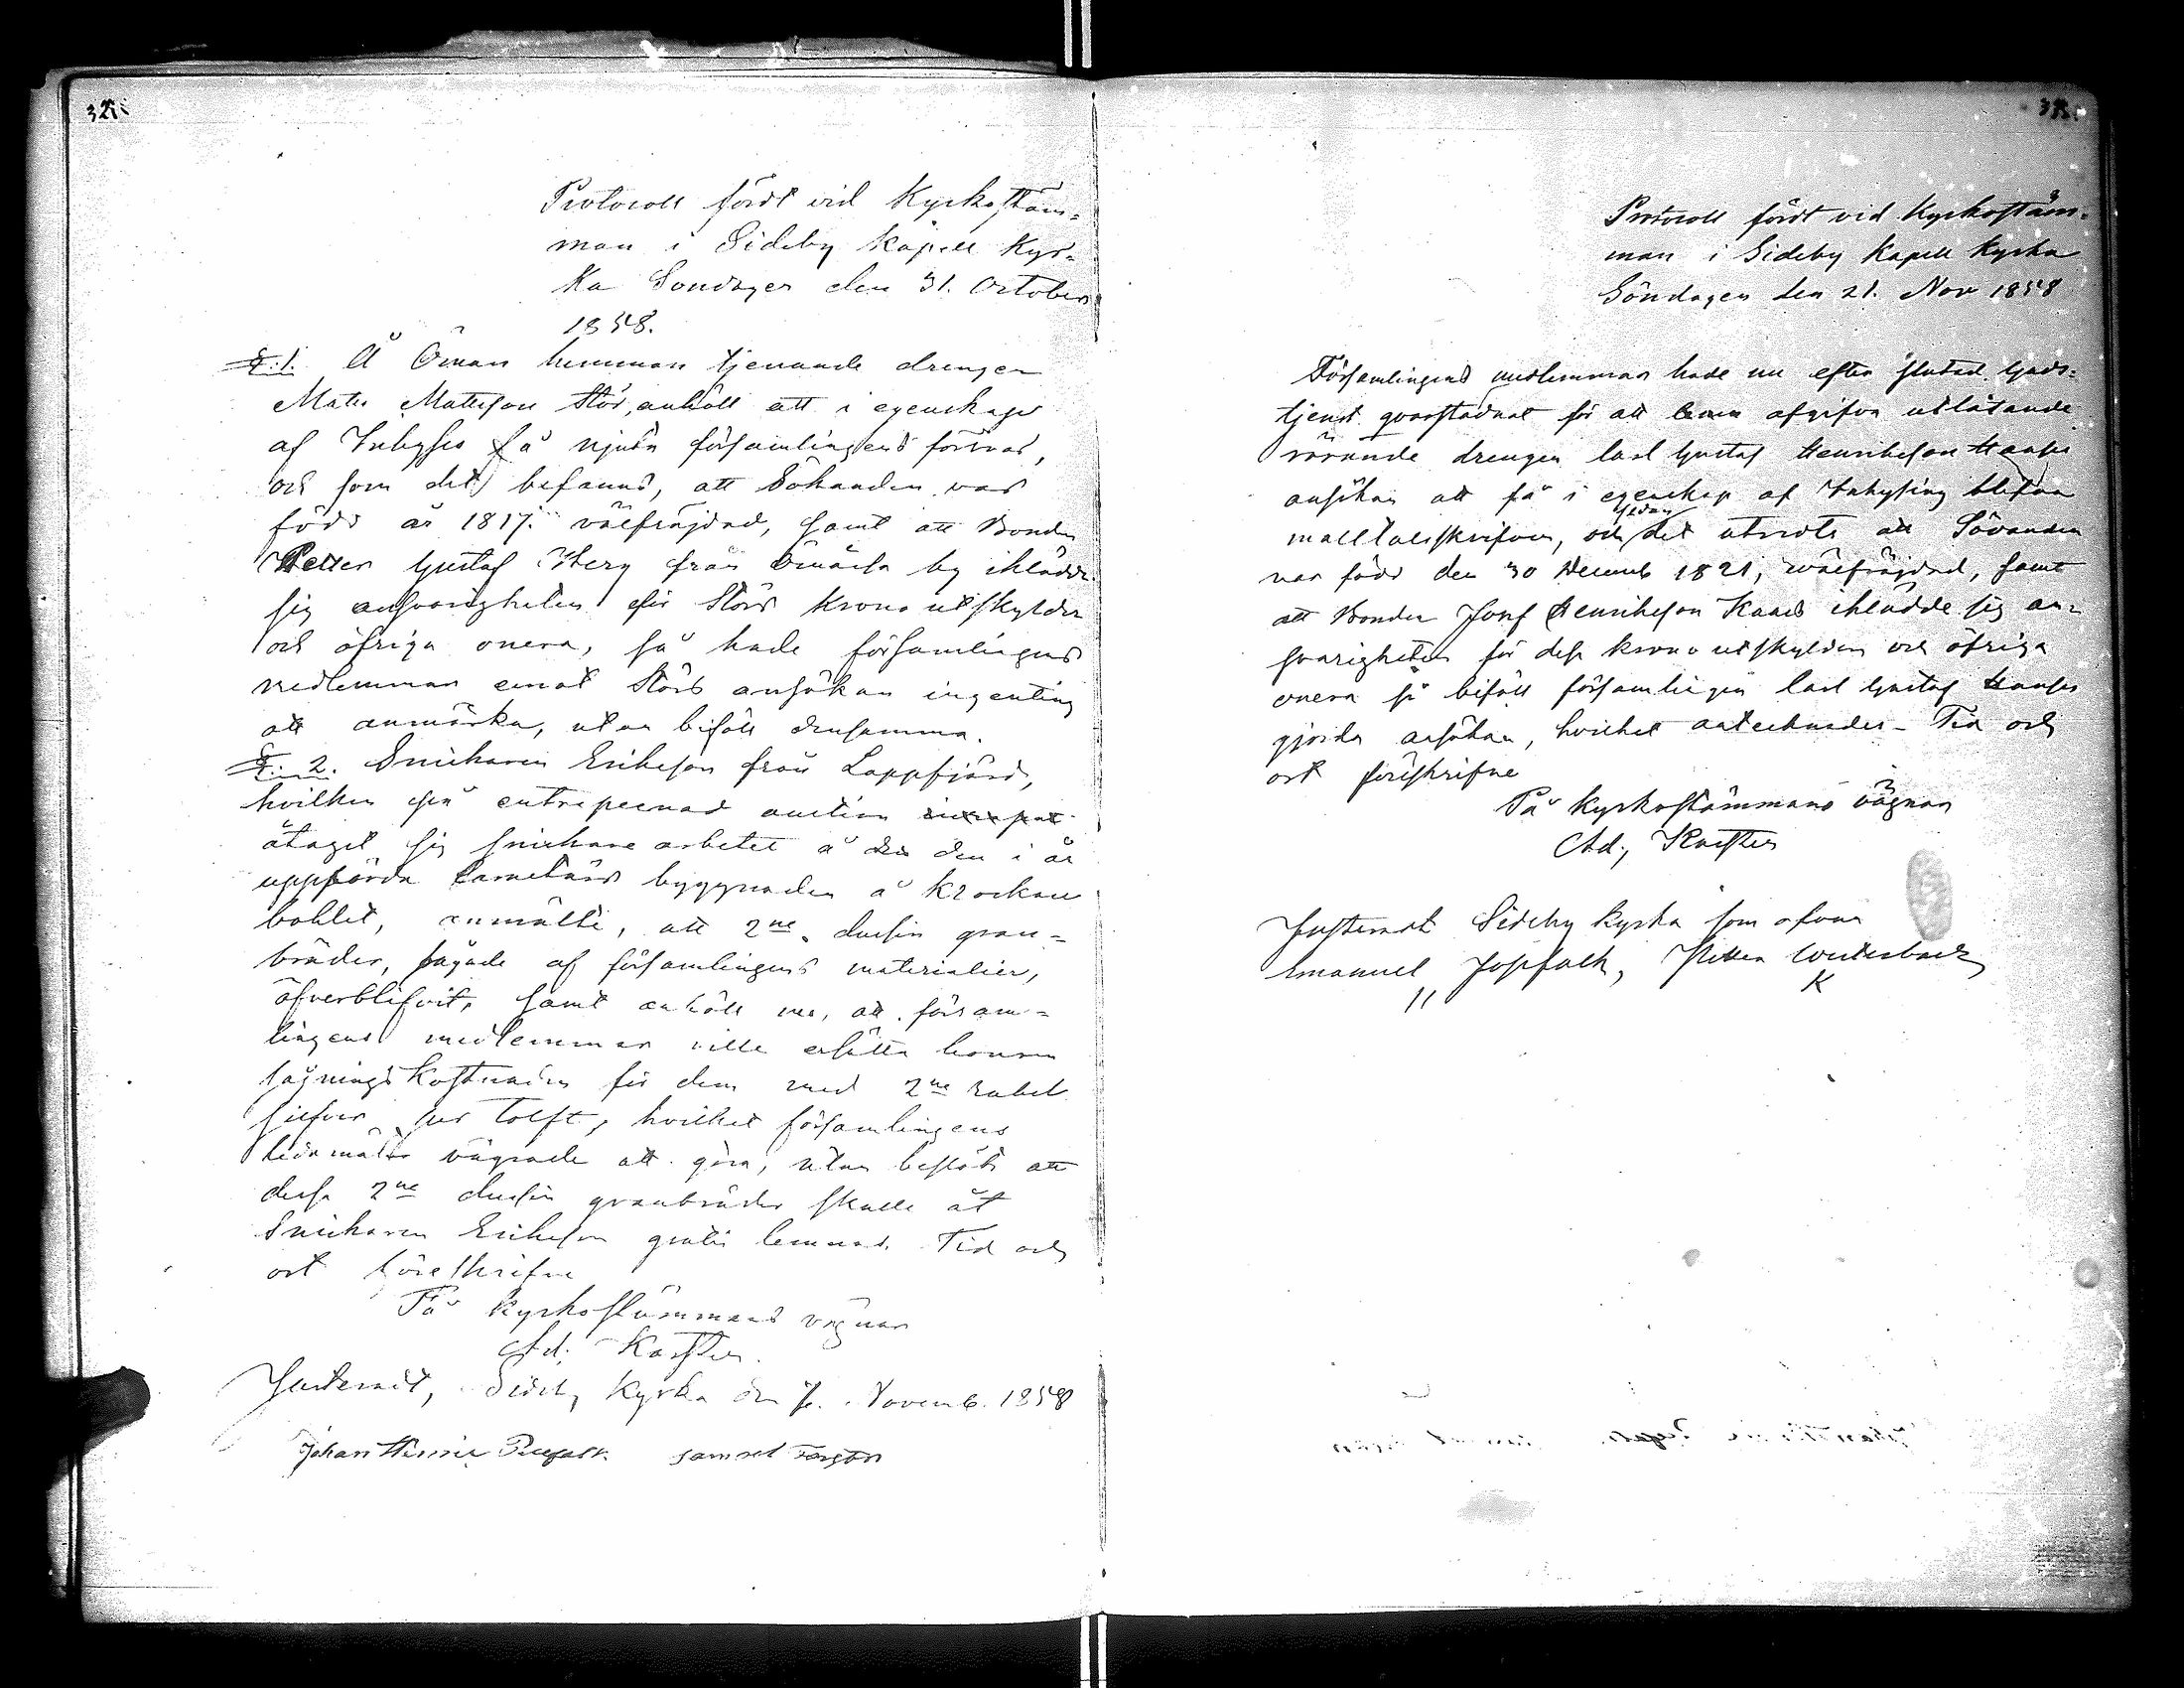 Protocoll fördt vid Kyrkostäm-
man i Sideby Kapell Kyr-
ka Söndagen den 31. October
1858.
§.1. Å Öman hemman tjenande drengen
Mats Mattsson Stör, anhöll att i egenskap
af Inhyses få njuta församlingens försvar,
och som det befanns, att Sökanden var
född år 1817. välfräjdad, samt att Bonden
Petter Gustaf Berg från Ömossa by iklädde
sig ansvarigheten för Störs krono utskylder
och öfriga onera, så hade församlingens
medlemmar emot Störs ansökan ingenting
att anmärka, utan biföll densamma.
§. 2. Snickaren Ericsson från Lappfjärd,
hvilken på entrepenad auction
åtagit sig snickare arbetet å den i år
uppförda byggnaden å Klockare
bohlet, anmälte, att 2ne dussin gran-
bräder, sågade af församlingens materialier,
öfverblifvit, samt anhöll nu, att försam-
lingens medlemmar ville ersätta honom
sågnings kostnaden för dem med 2ne rubel
silfver per Tolft, hvilket församlingens
ledamöter vägrade att göra, utan beslöts att
dessa 2ne dussin granbräder skulle åt
Snickaren Ericsson gratis lemnas. Tid och
ort föreskrifne
På Kyrkostämmans vägnar
Ad; Karsten.
Justeradt, Sideby Kyrka den 7. Novemb. 1858
Johan Henric Samuel

Protocoll fördt vid Kyrkostäm-
man i Sideby Kapell Kyrka
Söndagen den 21. Nov 1858
Församlingens medlemmar hade nu efter slutad Guds-
tjenst qvarstadnat för att afgifva utlåtande
rörande drengen Carl Gustaf Henriksson
ansökan att få i egenskap af Inhysing blifva
malltalsskrifven, och sedan det utrönts att Sökanden
var född den 30 Decemb 1821, välfräjdad, samt
att Bonden Josef Henriksson iklädde sig an-
svarigheten för dess krono utskylder och öfriga
onera så biföll församlingen Carl Gustaf
gjorda ansökan, hvilket antecknades - Tid och
ort föreskrifne
På Kyrkostämmans vägnar
Ad; Karsten
Justeradt Sideby Kyrka som ofvan
Emanuel Josfolk, Petter Westerback
K